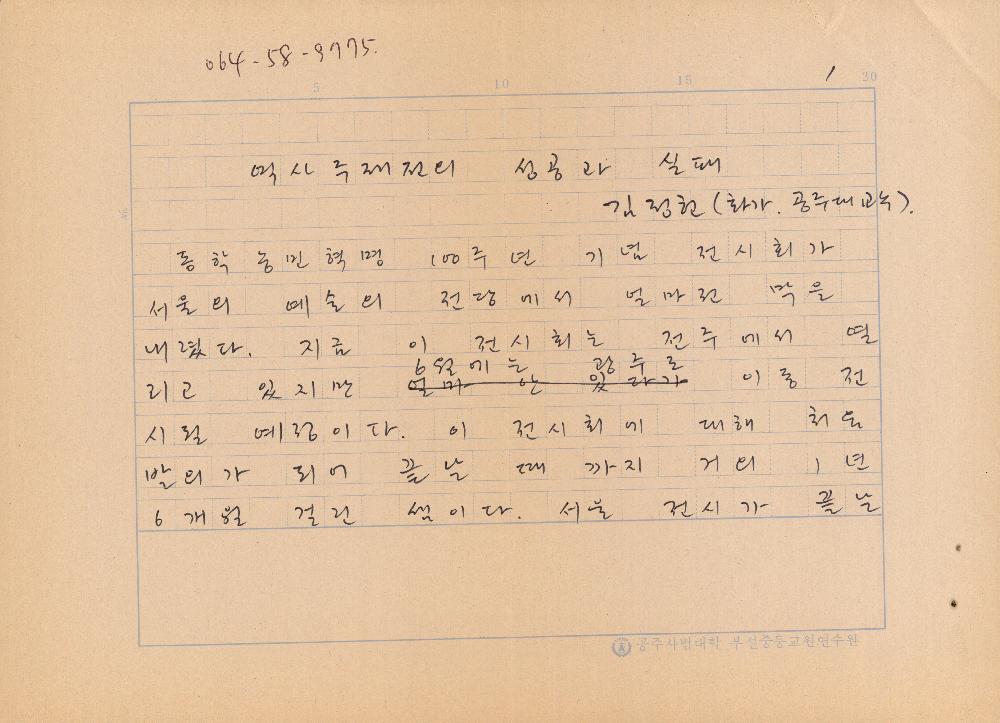 064-58-9775.
1
5 10 15 20
역사주제전의 성공과 실패
김정헌(화가. 공주대교수).
동학농민혁명 100주년 기념 전시회가
서울의 예술의 전당에서 얼마전 막을
내렸다. 지금 이 전시회는 전주에서 열
6월에는 광주로
리고 있지만 얼마 안 있다가 이동 전
시될 예정이다. 이 전시회에 대해 처음
발의가 되어 끝날 때까지 거의 1년
6개월 걸린 셈이다. 서울 전시가 끝날
공주사범대학 부설중등교원연수원